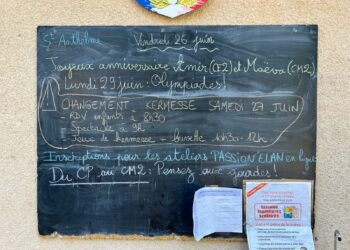 St Anthelme Vendredi 26 juin
Joyeux anniversaire Émir (CE2) et Maëva (CM2)
Lundi 29 juin : Olympiades !
CHANGEMENT KERMESSE SAMEDI 27 JUIN
- RDV enfants à 8h30
- Spectacle à 9h
- Jeux de kermesse + buvette 10h30-12h
Inscriptions pour les ateliers PASSION ELAN en ligne
Du CP au CM2 : Pensez aux gourdes !